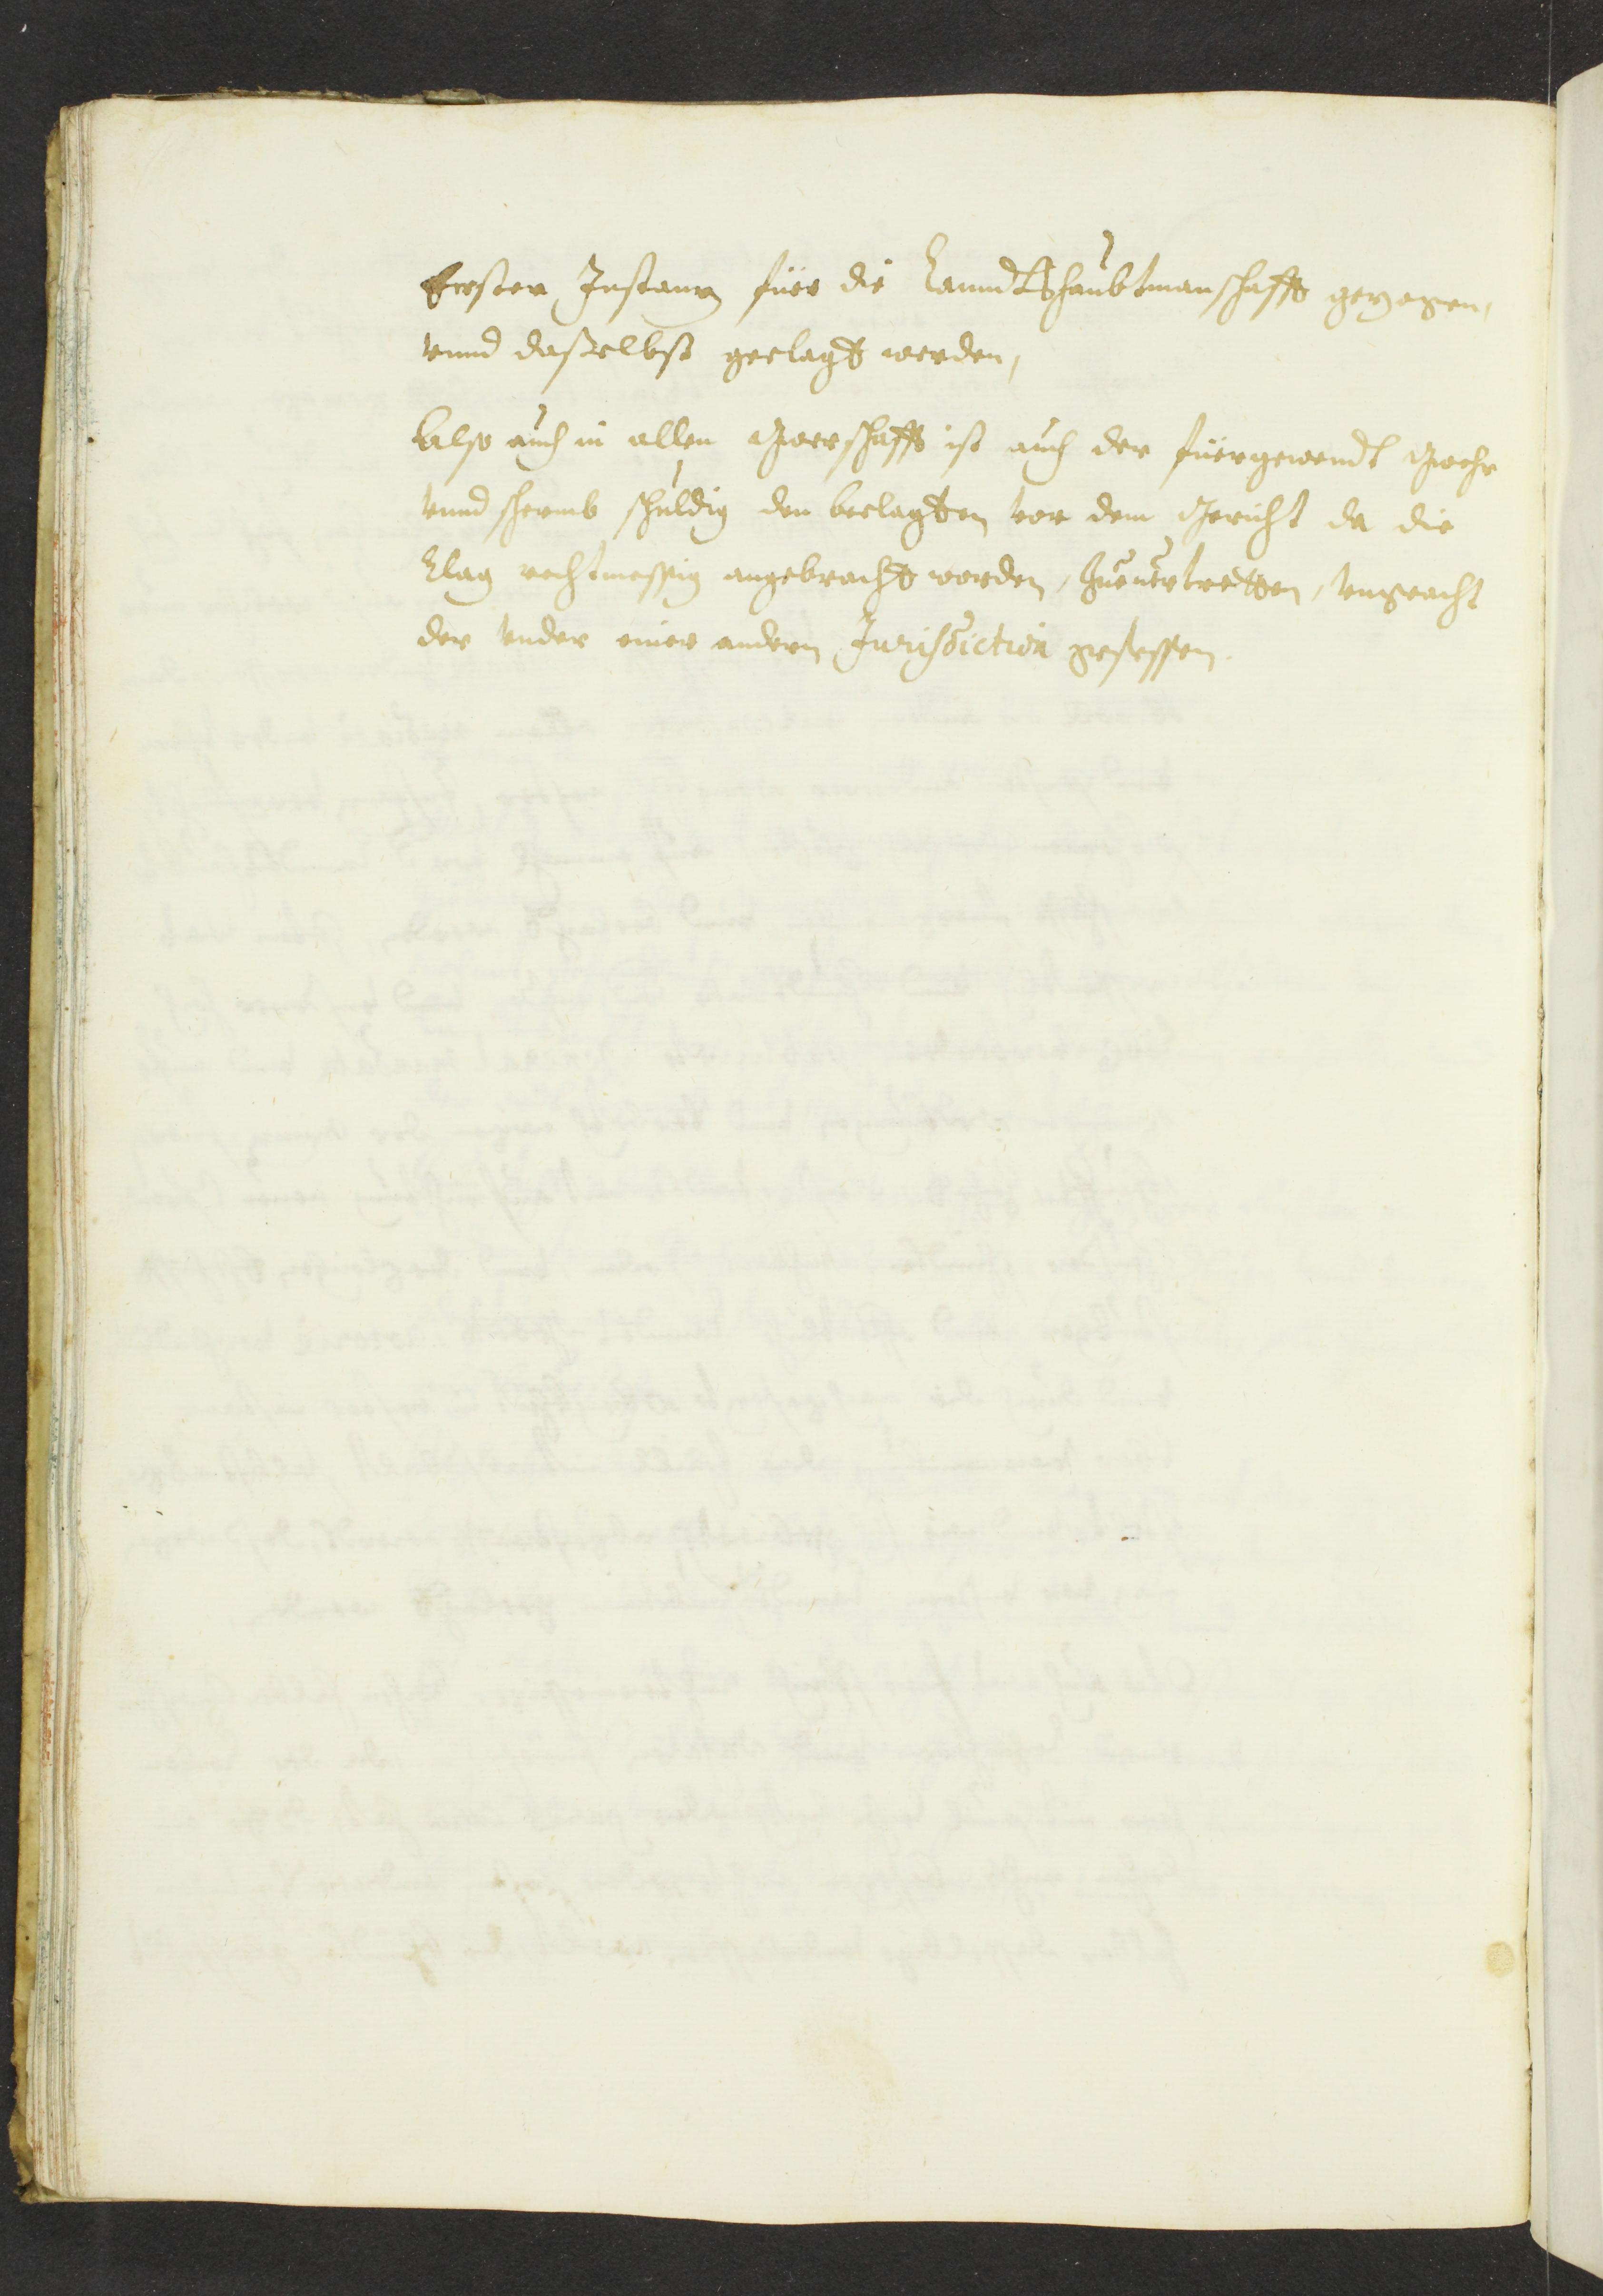 Erster Instantz füer die Lanndtshaubtmanschafft getzogen,
vnnd daßelbst geclagt werden,
Also auch in allen Gwerschafft ist auch der füergewendt Gwehr
vnnd schermb schuldig den beclagten vor dem Gericht da die
Clag rechtmessig angebracht worden, Zuuertretten, vngeacht
der vnder einer andern Jurisdiction gesessen.